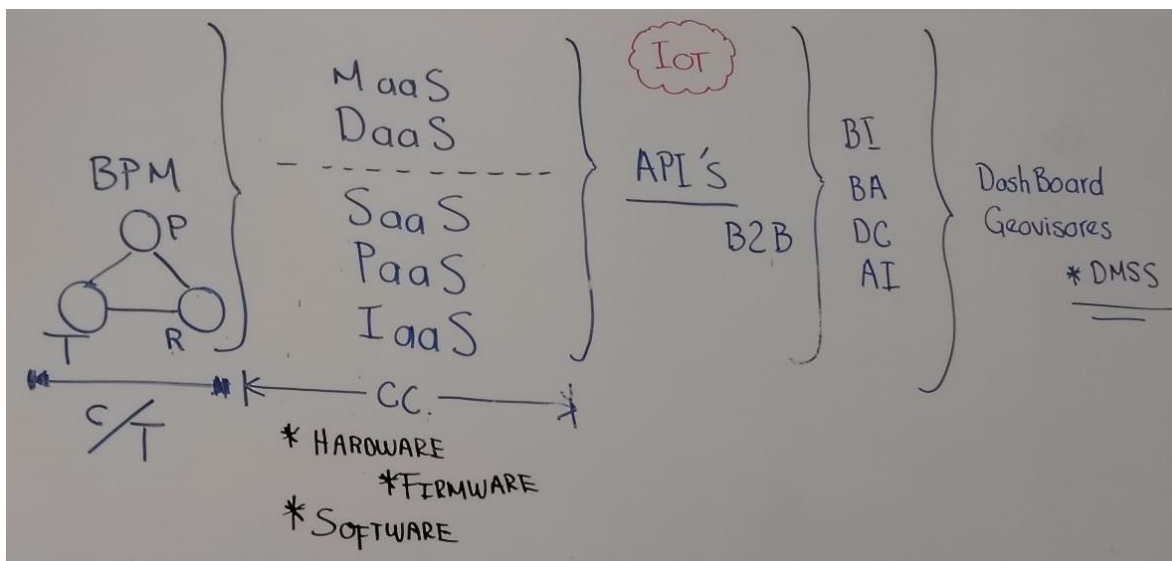 BPM
P
T
R
C/T
MaaS
DaaS
SaaS
PaaS
IaaS
CC.
* HARDWARE
* FIRMWARE
* SOFTWARE
IoT
API'S
B2B
BI
BA
DC
AI
DashBoard
Geovisores
* DMSS